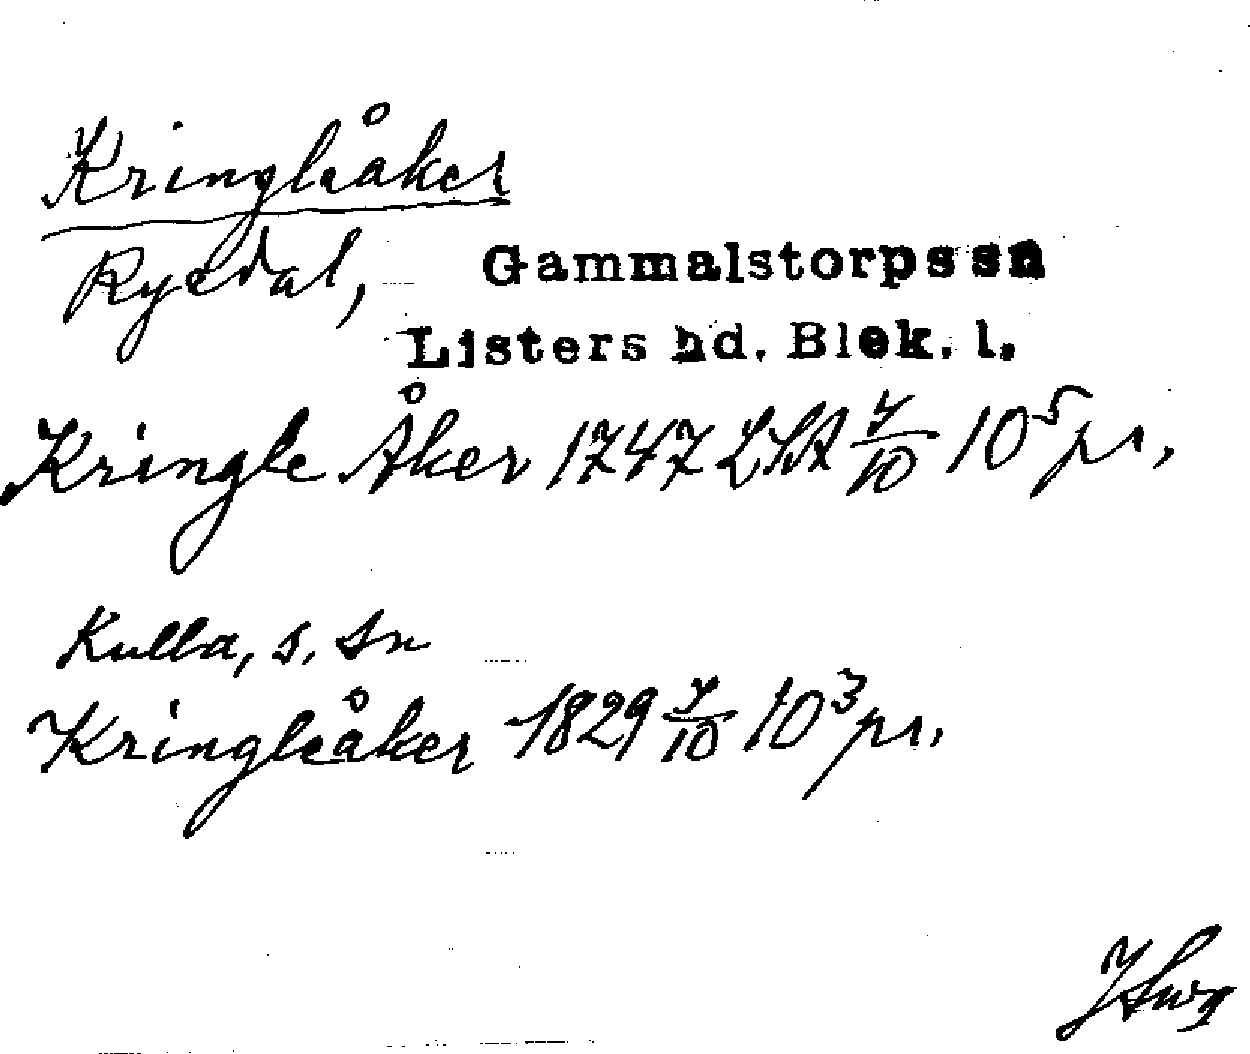 Kringleåker
Ryedal, Gammalstorps sn
Listers hd. Blek. l.
Kringle Åker 1747 LSA 7/10 10⁵ pr.,
Kulla, s. sn
Kringleåker 1829 7/10 10³ pr.